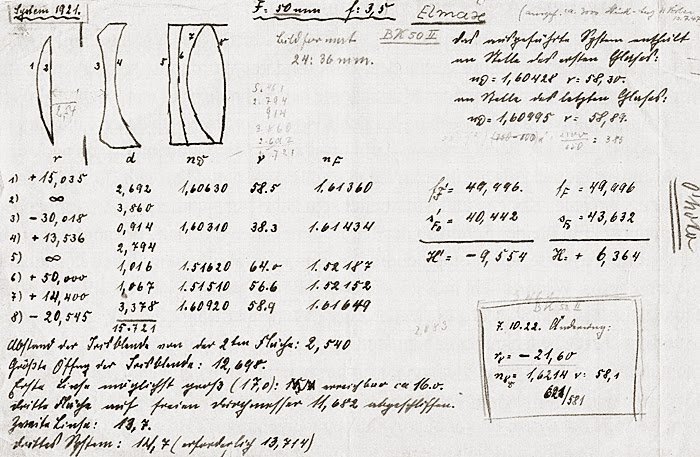 System 1921.
F: 50mm f: 3,5
Elmax
Bildformat
24:36 mm.
BK 50 II
das ausgeführte System enthält
an Stelle des ersten Glases:
nD = 1,60428 v = 58,30.
an Stelle des letzten Glases:
nD = 1,60995 v = 58,89.
1 2 3 4 5 6 7 8
r d nD v nF
1) + 15,035
2,692 1,60630 58.5 1.61360
2) ∞
3,560
3) - 30,018
0,914 1,60310 38.3 1.61434
4) + 13,536
2,794
5) ∞
1,016 1.51620 64.0 1.52187
6) + 50,000
1,067 1.51510 56.6 1.52152
7) + 14,400
3,378 1.60920 58.9 1.61649
8) - 20,545
15.721
= 49,996. = 49,996
= 40,442 = 43,632
H' = - 9,554 H = + 6,364
Abstand der Irisblende von der 2ten Fläche: 2,540
Größte Öffng der Irisblende: 12,698.
Erste Linse möglichst groß (17,0): erreichbar ca 16.0.
dritte Fläche auf freien Durchmesser 11,682 abgeschliffen.
Zweite Linse: 13,7.
drittes System: 14,7 (erforderlich 13,714)
BK 50 II
7.10.22. Änderung:
= - 21,60
= 1,6214 v = 58,1
621/581